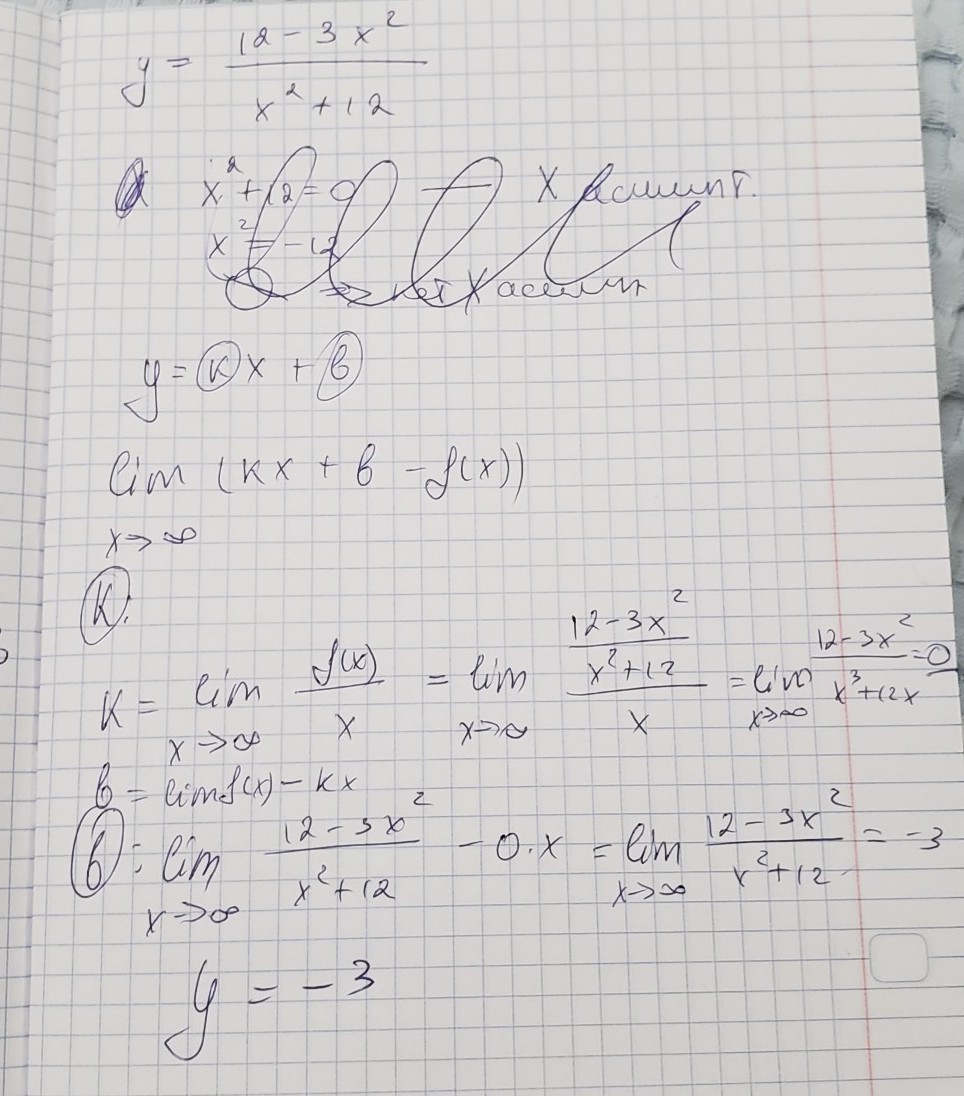 y = (12 - 3x²)/(x² + 12)
x² + 12 = 0 — X асимпт.
x² = -12
=> нет X асимп
y = kx + b
lim (kx + b - f(x))
x→∞
K:
K = lim x→∞ f(x)/x = lim x→∞ ((12-3x²)/(x²+12))/x = lim x→∞ (12-3x²)/(x³+12x) = 0
b = lim f(x) - kx
b: lim x→∞ (12-3x²)/(x²+12) - 0·x = lim x→∞ (12-3x²)/(x²+12) = -3
y = -3